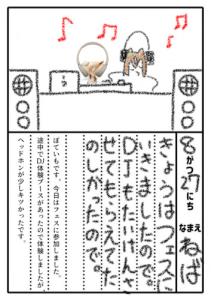 8がつ27にち
なまえ ねば
きょうはフェスに
いきましたので。
DJもたいけんさ
せてもらえてた
のしかったので。
です。今日はフェスに参加しました。
途中でDJ体験ブースがあったので体験しましたが、
ヘッドホンが少しキツかったです。